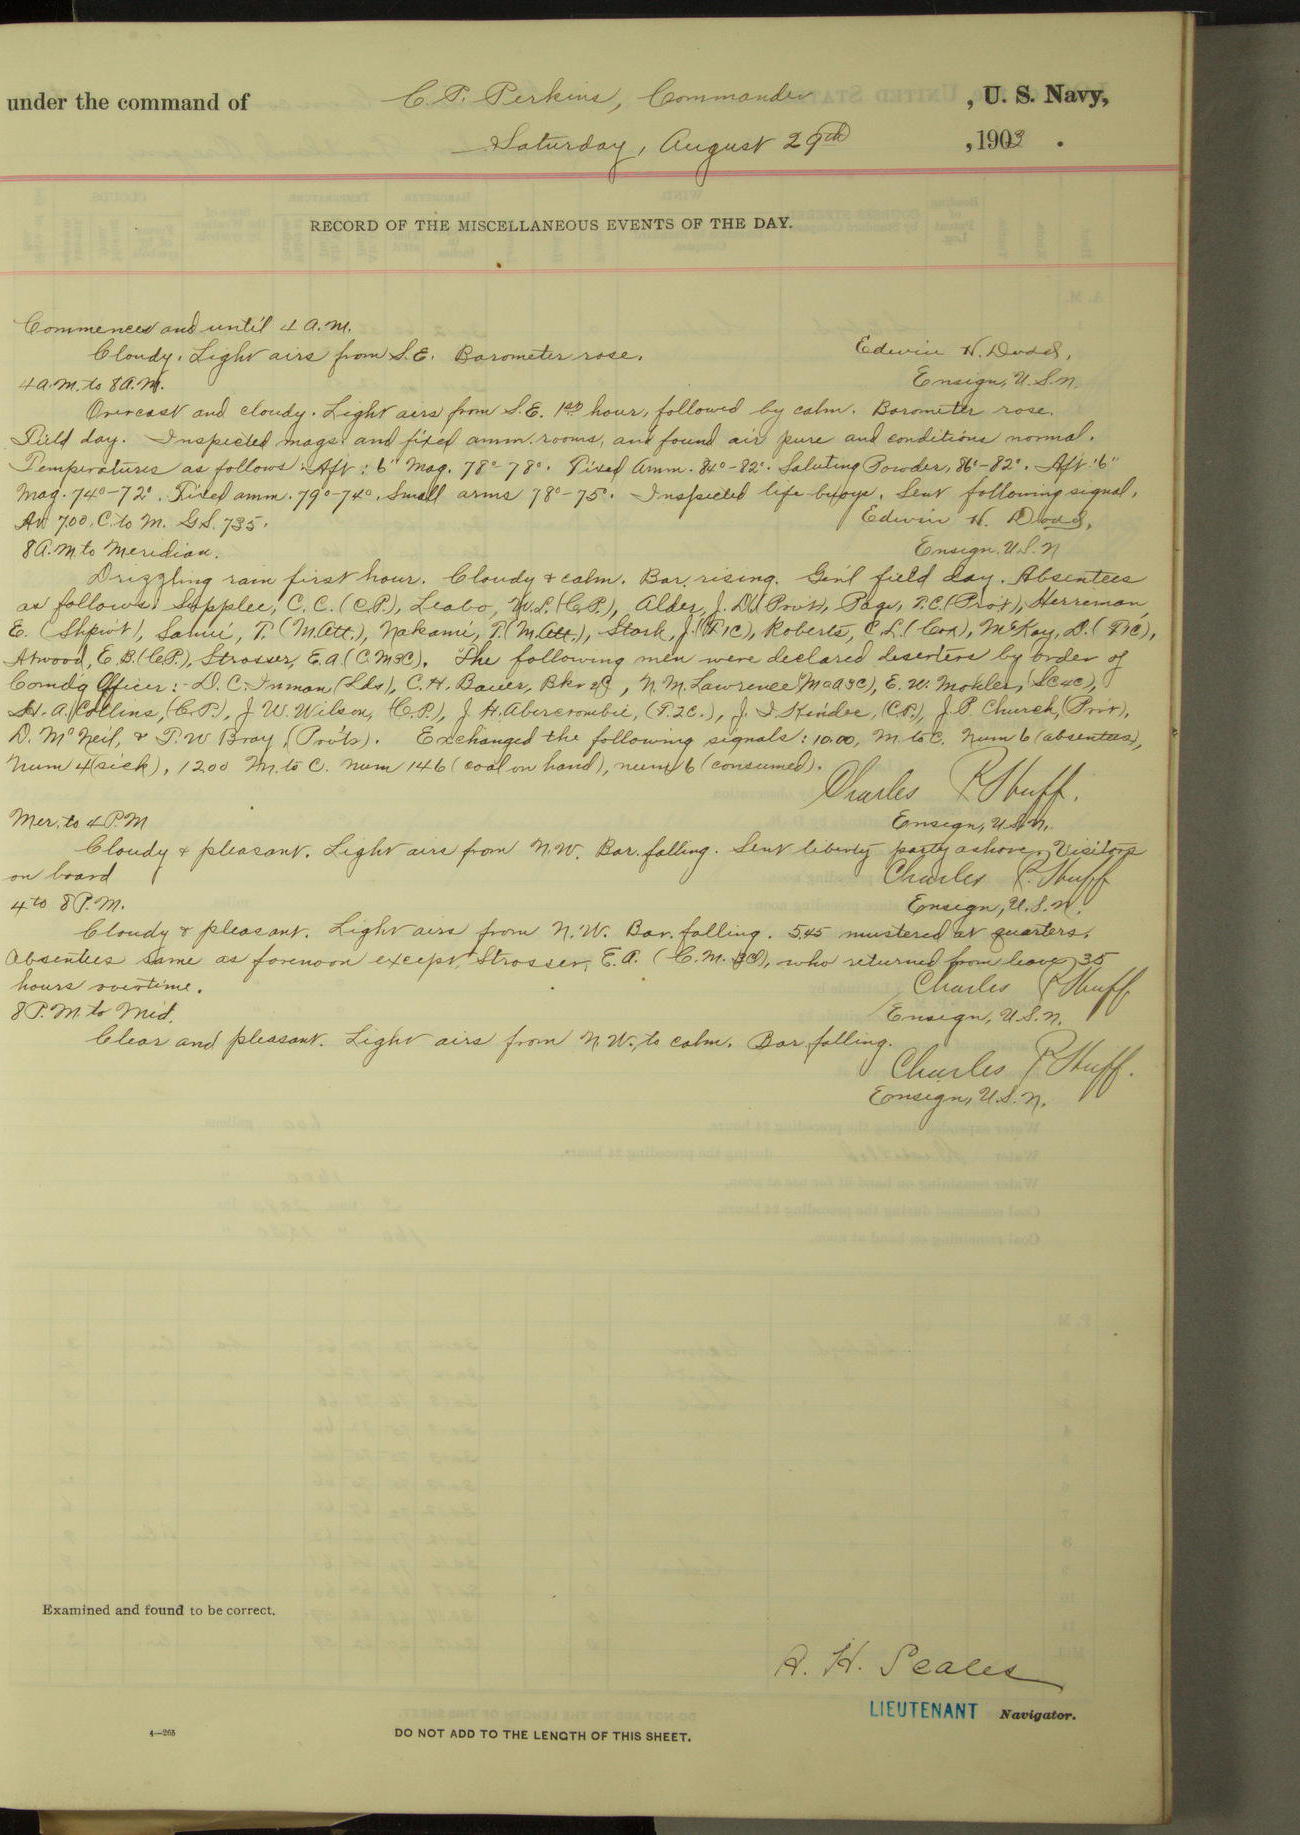 under the command of C. P. Perkins, Commander, U. S. Navy,
Saturday, August 29th, 1903.
RECORD OF THE MISCELLANEOUS EVENTS OF THE DAY.
Commences and until 4 A.M.
Cloudy. Light airs from S.E. Barometer rose. Edwin H. Dodd,
4 A.M. to 8 A.M. Ensign, U.S.N.
Overcast and cloudy. Light airs from S.E. 1st hour, followed by calm. Barometer rose.
Field day. Inspected mags. and fixed amm. rooms, and found air pure and conditions normal.
Temperatures as follows: Aft: 6" Mag. 78°-78°. Fixed Amm. 84°-82°. Saluting Powder, 86°-82°. Aft 6"
Mag. 74°-72°. Fixed amm. 79°-74°. Small arms 78°-75°. Inspected life buoys. Sent following signal.
At 7.00. C. to M. G.S. 735. Edwin H. Dodd,
8 A.M. to Meridian. Ensign, U.S.N
Drizzling rain first hour. Cloudy & calm. Bar. rising. Gen'l field day. Absentees
as follows: Supplee, C.C. (C.P.), Leabo, W.L. (C.P.), Alder, J. D. (Priv't), Page, T.C. (Priv't), Herreman,
E. (Shpwt), Sanui, T. (M.Att.), Nakami, T. (M.Att.), Stark, J. (F1C), Roberts, C.L. (Cox), McKay, D. (F1C),
Atwood, E.B. (C.P.), Strosser, E.A. (C.M3C). The following men were declared deserters by order of
Comdg Officer:- D. C. Inman (Lds), C. H. Bauer, Bkr 2C, N. M. Lawrence (MaA3C), E. W. Mohler, (SC4C),
H. A. Collins, (C.P.), J. W. Wilson, (C.P.), J. H. Abercrombie, (F.2C.), J. I. Kinder, (C.P.), J. P. Church, (Priv't),
D. McNeil, & T. W Bray, (Priv'ts). Exchanged the following signals: 10.00, M. to C. Num 6 (absentees),
Num 4 (sick), 12.00 M. to C. Num 146 (coal on hand), num 6 (consumed).
Charles P. Huff.
Mer. to 4 P.M Ensign, U.S.N.
Cloudy & pleasant. Light airs from N.W. Bar. falling. Sent liberty party ashore. Visitors
on board Charles P. Huff
4 to 8 P.M. Ensign, U.S.N.
Cloudy & pleasant. Light airs from N.W. Bar. falling. 5.45 mustered at quarters.
Absentees same as forenoon except Strosser, E.A. (C.M.3C), who returned from leave 35
hours overtime. Charles P. Huff
8 P.M. to Mid. Ensign, U.S.N.
Clear and pleasant. Light airs from N.W. to calm. Bar. falling.
Charles P. Huff.
Ensign, U.S.N.
Examined and found to be correct.
A. H. Scales
LIEUTENANT Navigator.
4—265
DO NOT ADD TO THE LENGTH OF THIS SHEET.